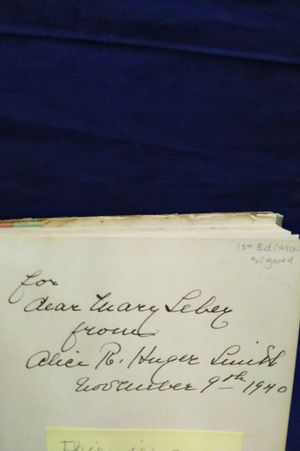 1st Edition
signed
for
dear Mary Leber
from
Alice R. Huger Smith
November 9th 1940